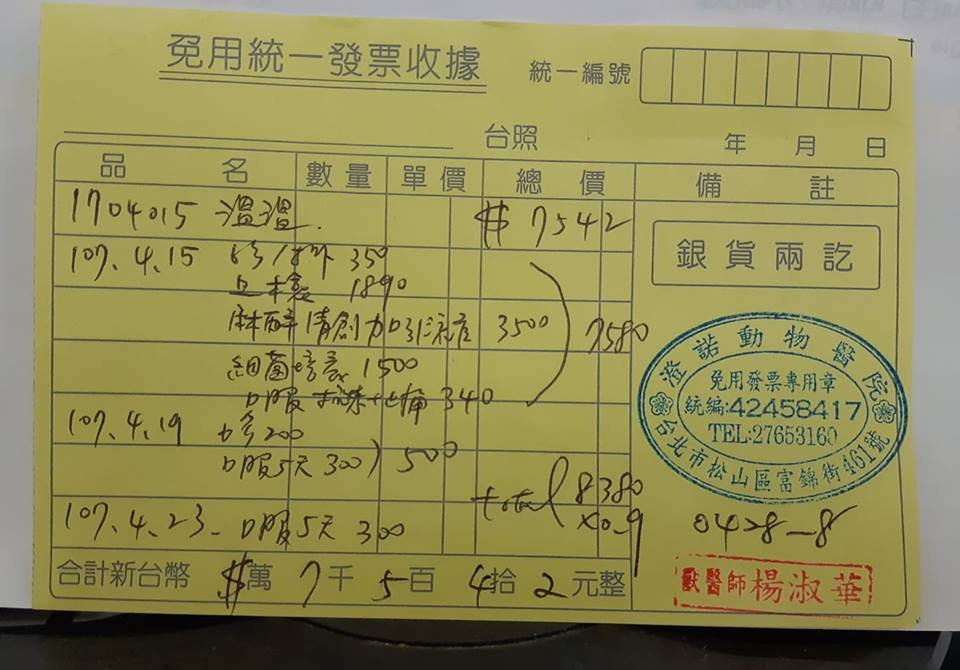 免用統一發票收據
統一編號
台照 年 月 日
品名 數量 單價 總價 備註
1704015 溫溫. $7542
銀貨兩訖
107.4.15 350
1890
麻醉清創加引流管 3500 7580
細菌培養 1500
口服 340
107.4.19 200
口服5天 300 500
total 8380
x0.9
107.4.23. 口服5天 300
合計新台幣 $萬 7千 5百 4拾 2元整
澄諾動物醫院
免用發票專用章
統編:42458417
TEL:27653160
台北市松山區富錦街461號
0428-8
獸醫師楊淑華